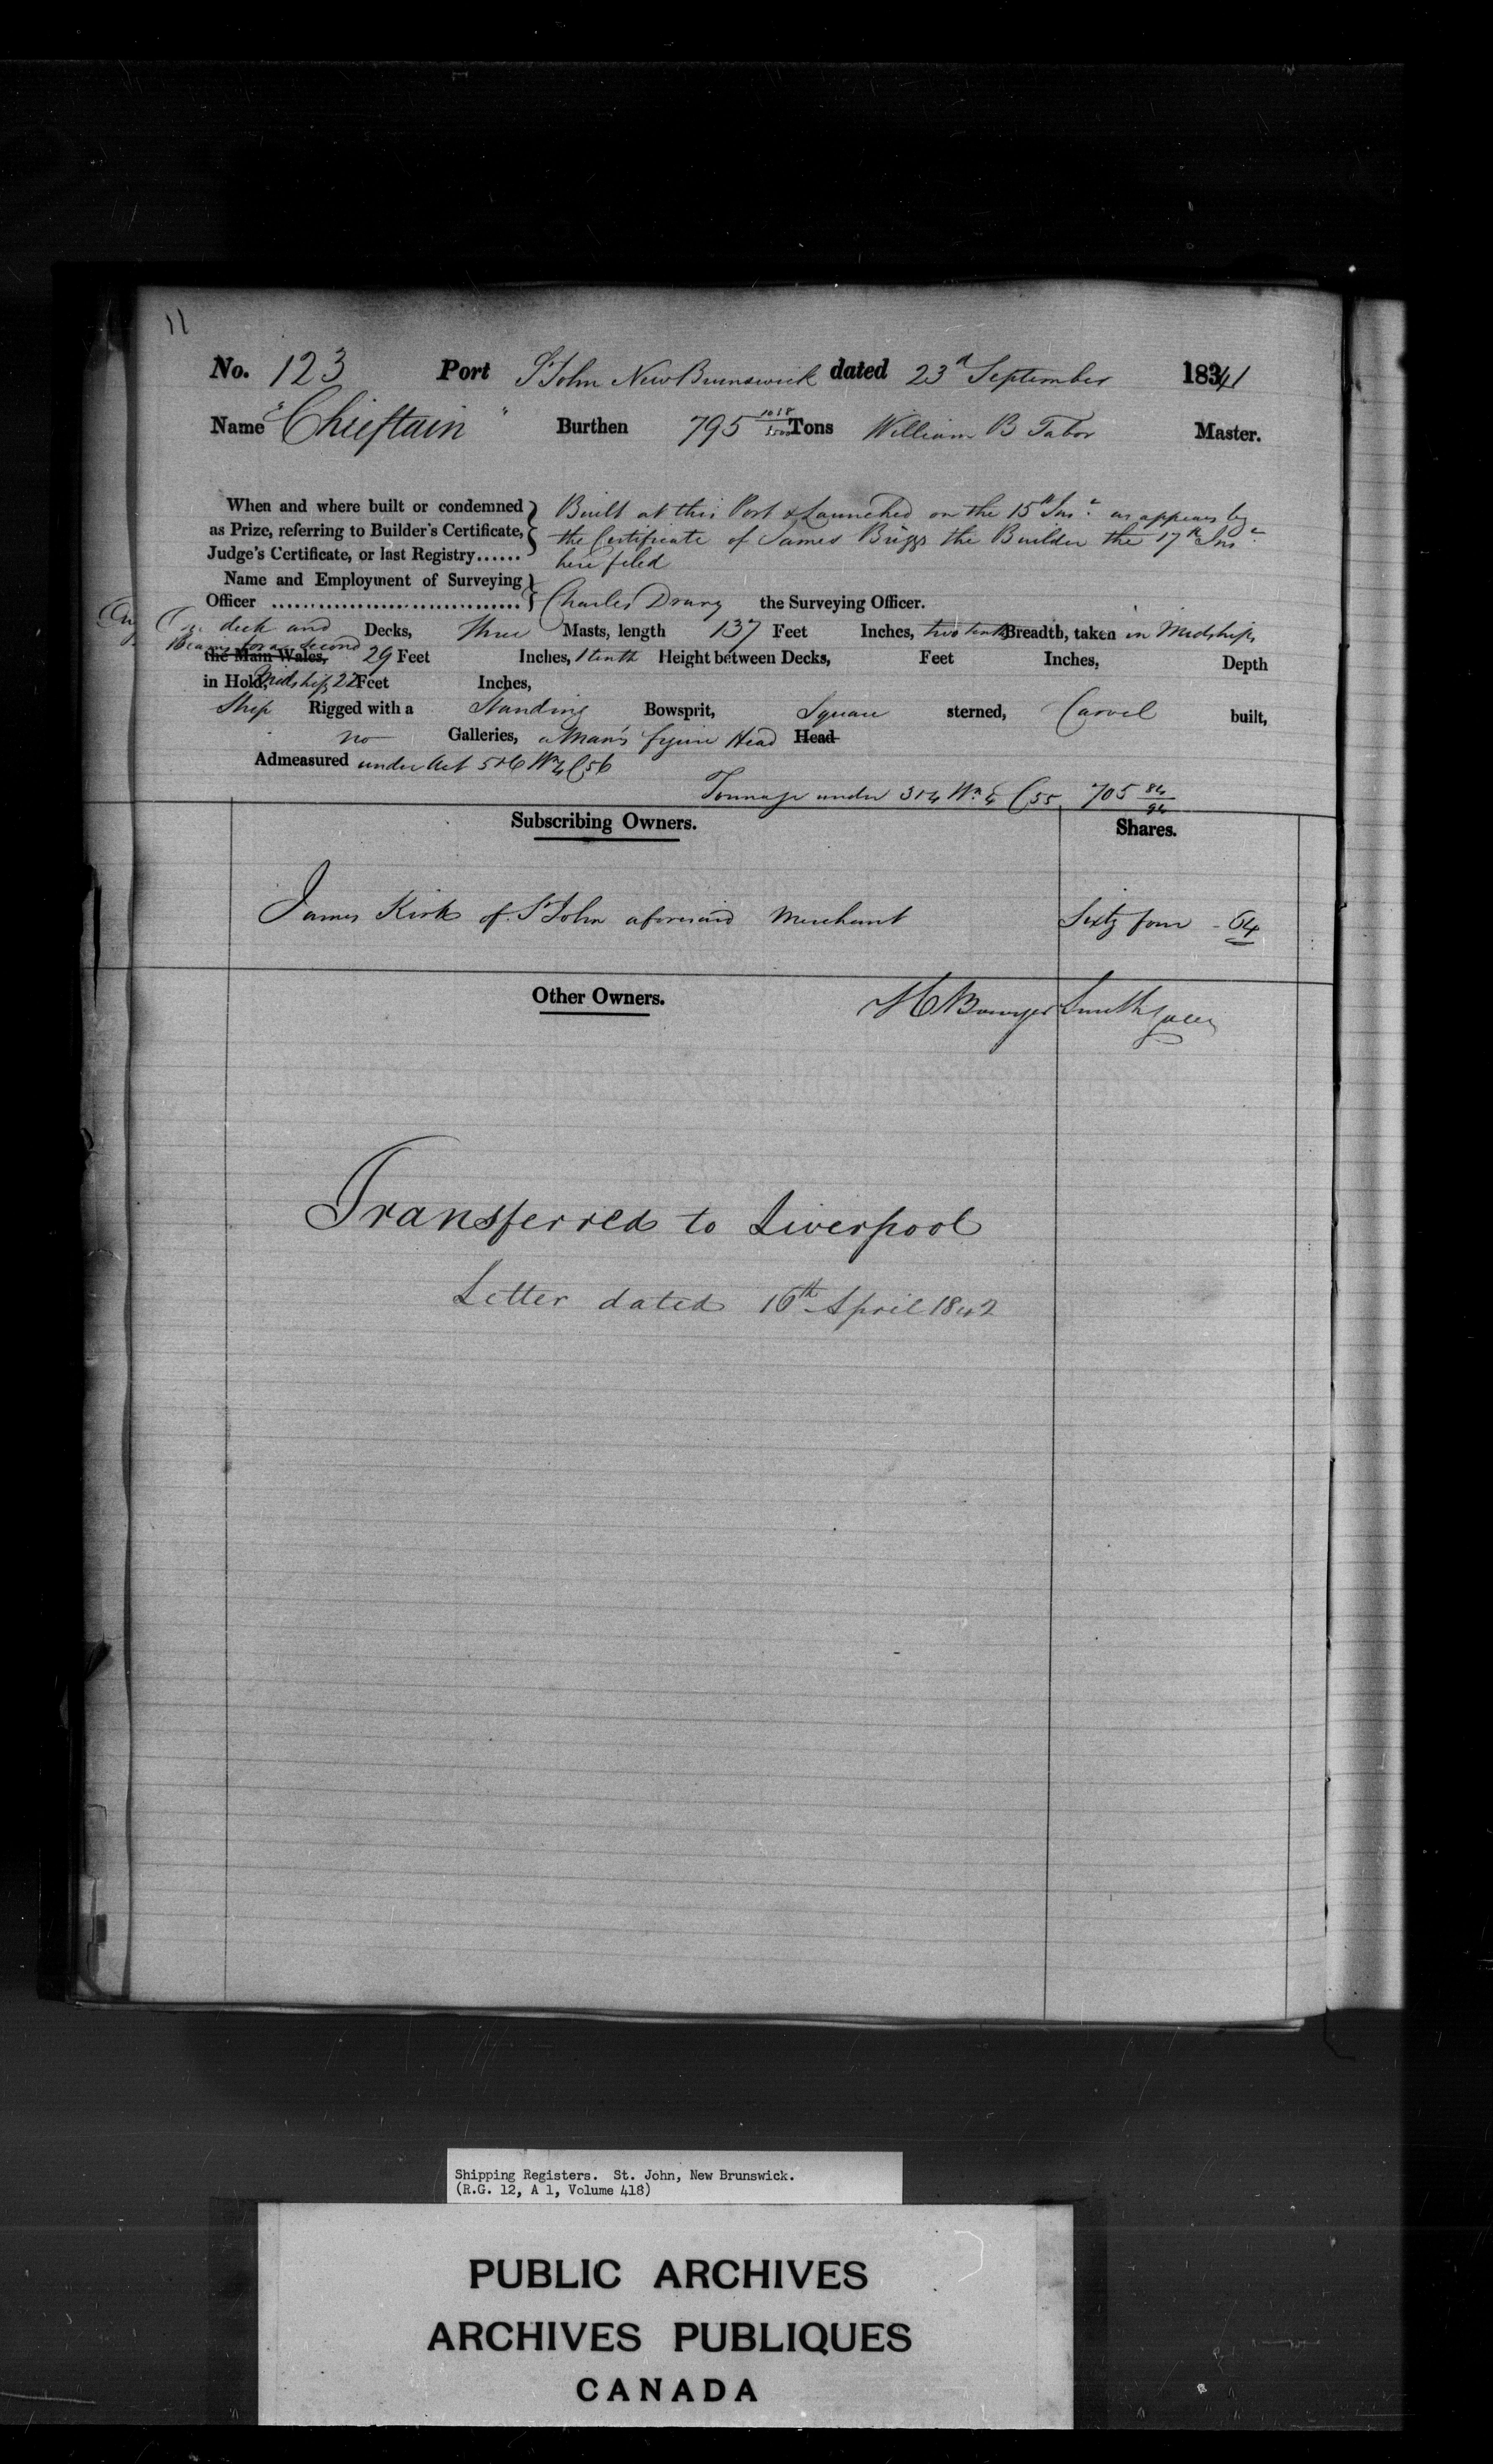 11
No. 123 Port St John New Brunswick dated 23d September 1841
Name "Chieftain" Burthen 795 1018/3500 Tons William B Tabor Master.
When and where built or condemned as Prize, referring to Builder's Certificate, Judge's Certificate, or last Registry......
Built at this Port & Launched on the 15th Inst. as appears by
the Certificate of James Briggs the Builder the 17th Inst.
here filed
Name and Employment of Surveying
Officer .................................. Charles Drury the Surveying Officer.
One deck and Decks, three Masts, length 137 Feet Inches, two tenths Breadth, taken in Midships,
Beams for a second
the Main Wales, 29 Feet Inches, 1 tenth Height between Decks, Feet Inches, Depth
in Hold, Midships 22 Feet Inches,
Ship Rigged with a Standing Bowsprit, Square sterned, Carvel built,
no Galleries, a Man's figure Head Head
Admeasured under Act 5 & 6 Wm 4 C 56
Tonnage under 3 & 4 Wm 4 C 55 705 84/94
Subscribing Owners. Shares.
James Kirk of St John aforesaid Merchant Sixty four - 64
Other Owners. H Bowyer Smith
Transferred to Liverpool
Letter dated 16th April 1842
Shipping Registers. St. John, New Brunswick.
(R.G. 12, A 1, Volume 418)
PUBLIC ARCHIVES
ARCHIVES PUBLIQUES
CANADA